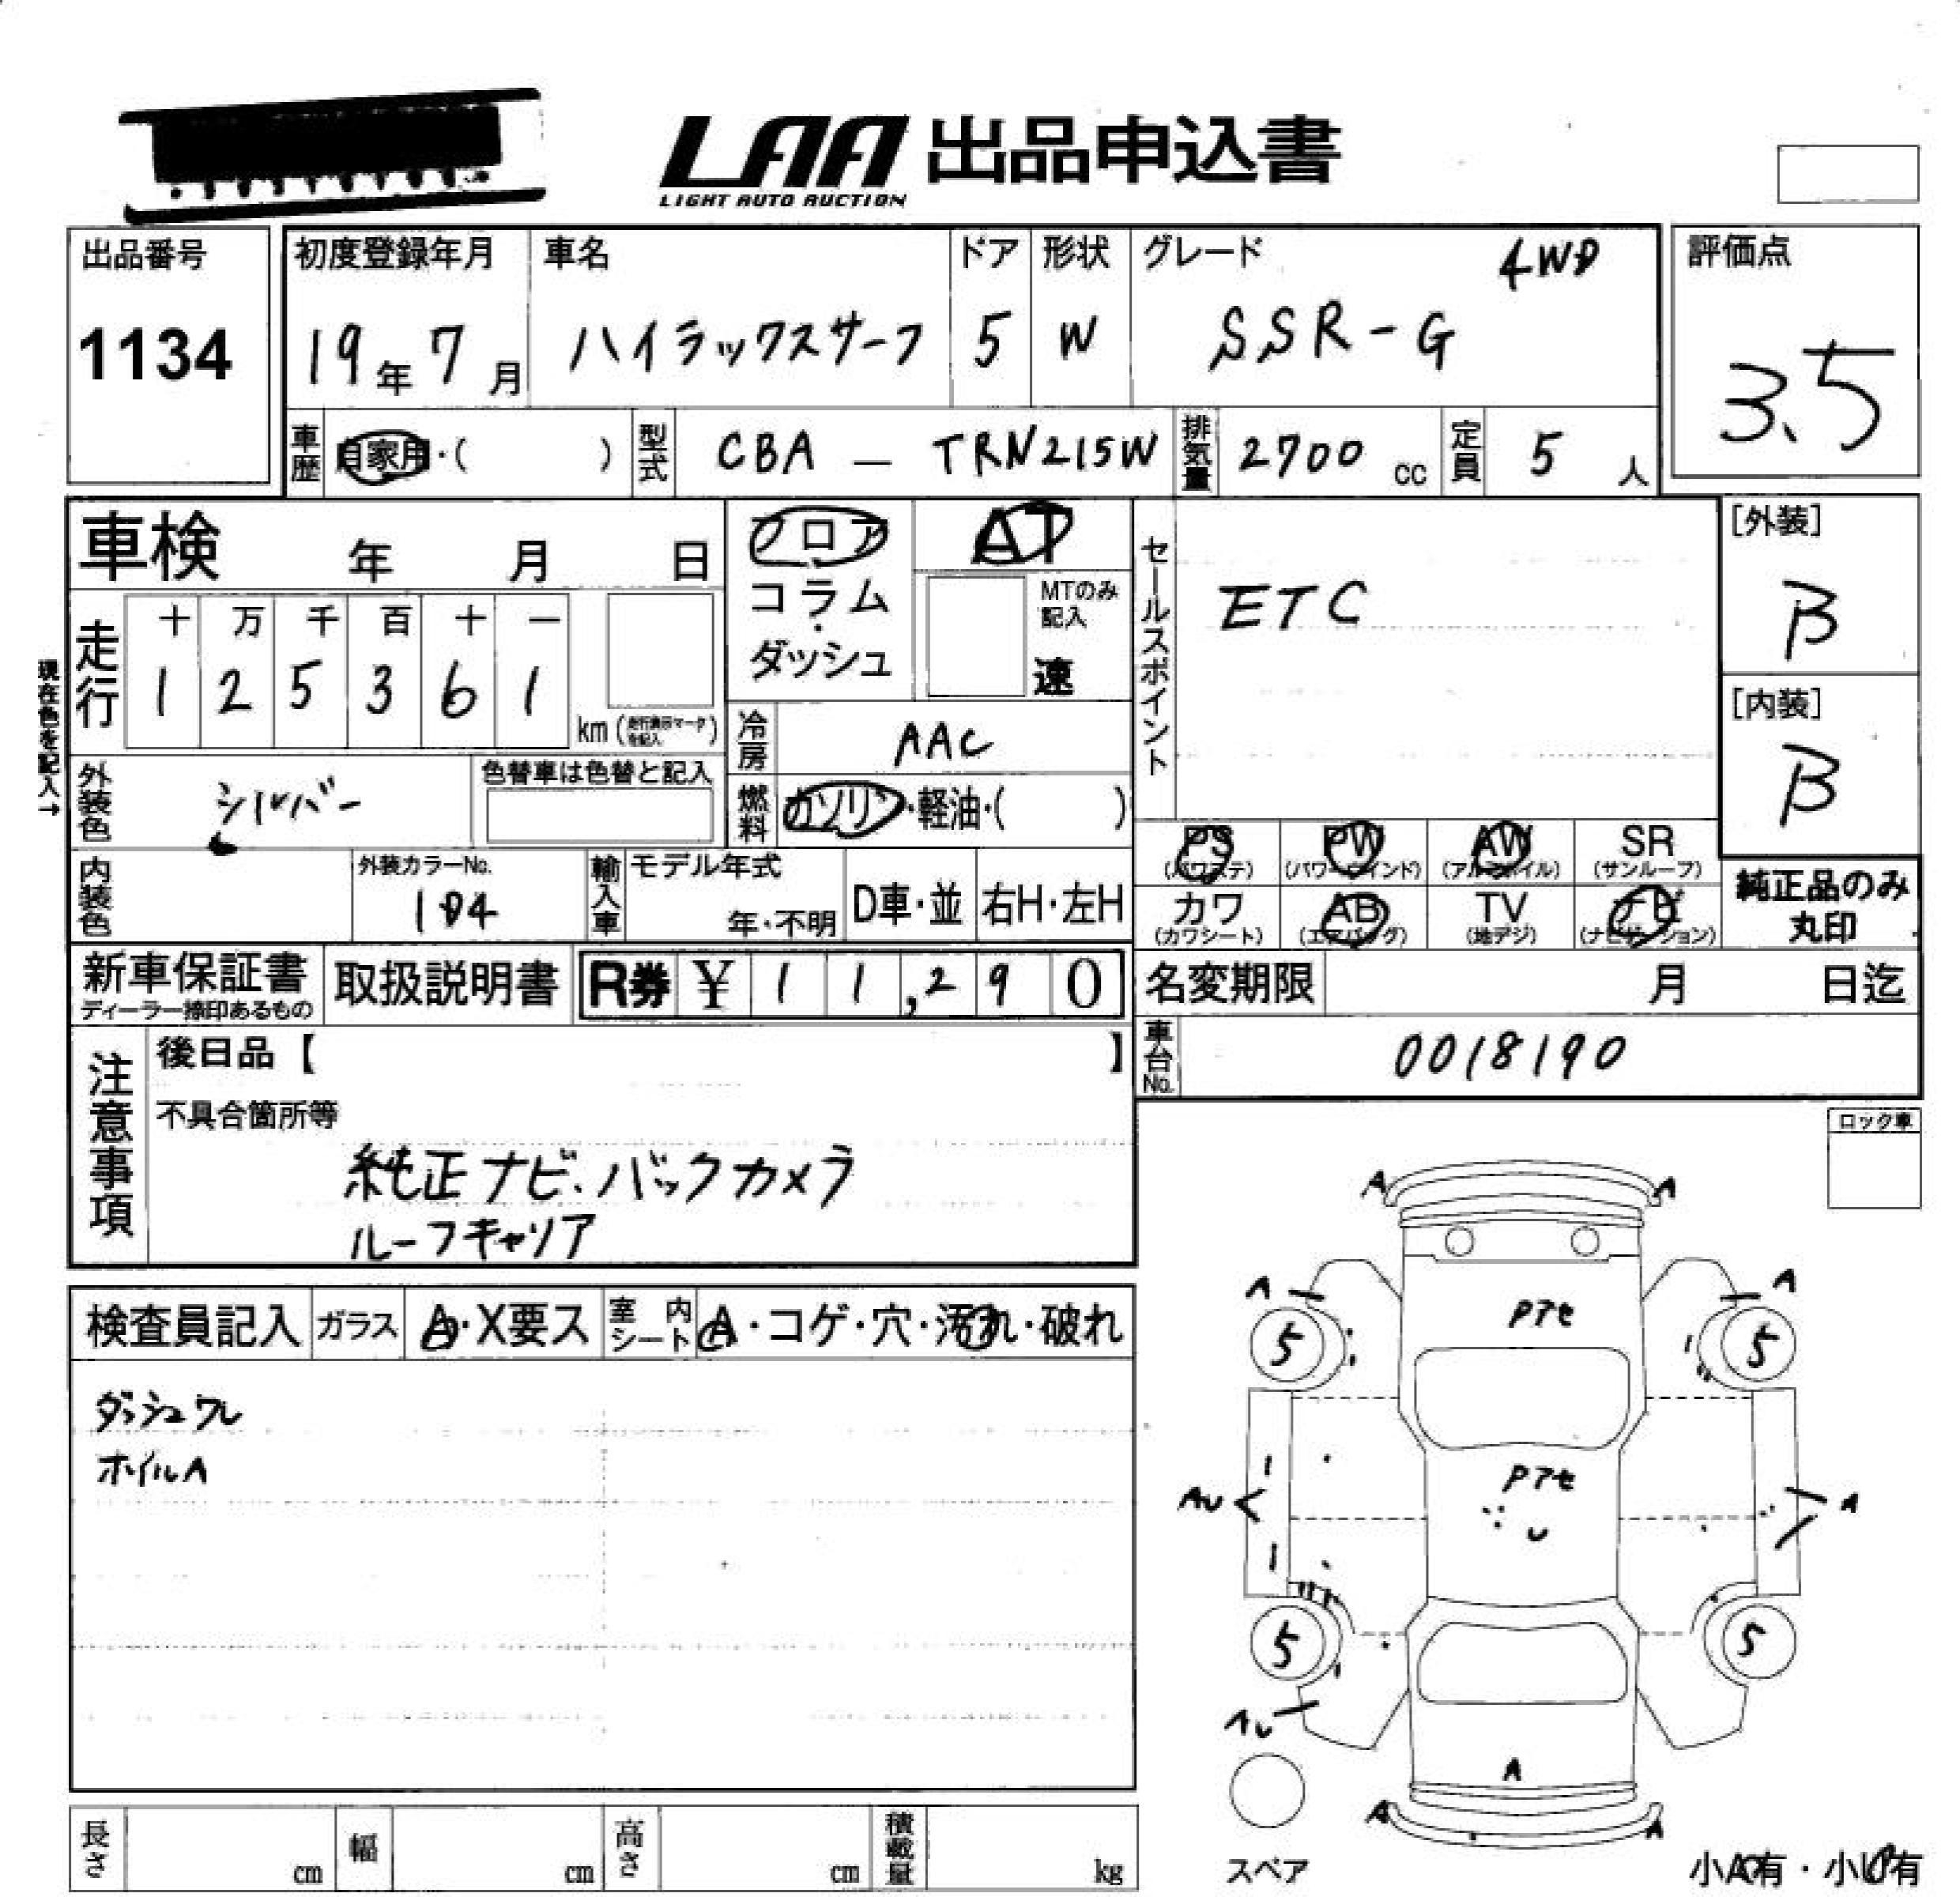 LAA 出品申込書
LIGHT AUTO AUCTION
出品番号
1134
初度登録年月
19年7月
車名
ハイラックスサーフ
ドア
5
形状
W
グレード
4WD
SSR-G
評価点
3.5
車歴
自家用・( )
型式
CBA — TRN215W
排気量
2700 cc
定員
5 人
車検 年 月 日
フロア・コラム・ダッシュ
AT
MTのみ記入
速
セールスポイント
ETC
[外装]
B
[内装]
B
現在色を記入→
走行
十 万 千 百 十 一
1 2 5 3 6 1
km (走行表示マークを記入)
冷房
AAC
外装色
シルバー
色替車は色替と記入
燃料
ガソリン・軽油・( )
PS (パワステ)
PW (パワーウインド)
AW (アルミホイル)
SR (サンルーフ)
カワ (カワシート)
AB (エアバッグ)
TV (地デジ)
ナビ (ナビゲーション)
純正品のみ丸印
内装色
外装カラーNo.
1D4
輸入車
モデル年式
年・不明
D車・並
右H・左H
新車保証書
ディーラー捺印あるもの
取扱説明書
R券 ¥ 11,290
名変期限 月 日迄
車台No.
0018190
注意事項
後日品【 】
不具合箇所等
純正ナビ・バックカメラ
ルーフキャリア
ロック車
検査員記入
ガラス
A・X要ス
室内シート
A・コゲ・穴・汚れ・破れ
ダッシュワレ
ホイルA
A A
A A
Pアセ
5 5
Pアセ
AU A
U
5 5
AU
A
A A
スペア
小A有・小U有
長さ cm
幅 cm
高さ cm
積載量 kg